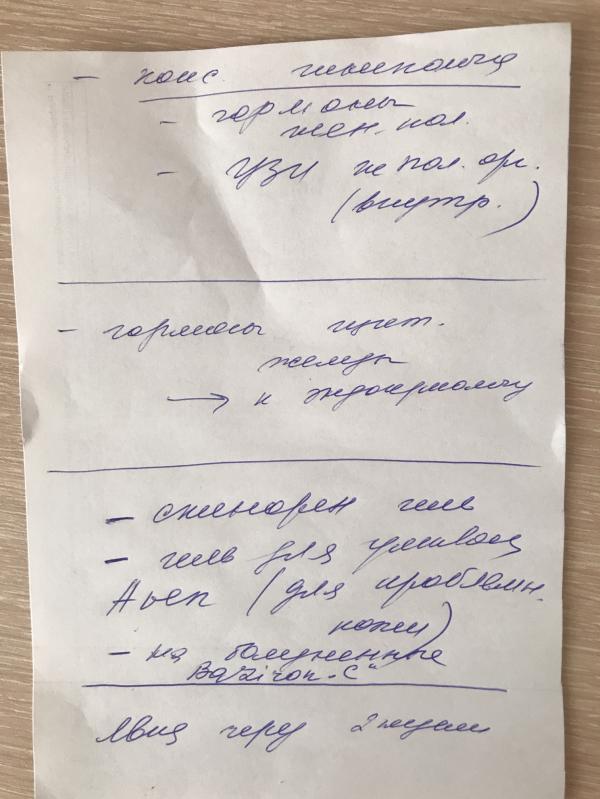 - конс. гинеколога
- гормоны
жен. пол.
- УЗИ ж пол. орг.
(внутр.)
- гормоны щит.
железы
→ к эндокринологу
- скинорен гель
- гель для умывания
(для проблемн.
кожи)
- на
Baziron "С"
Явка через 2 недели